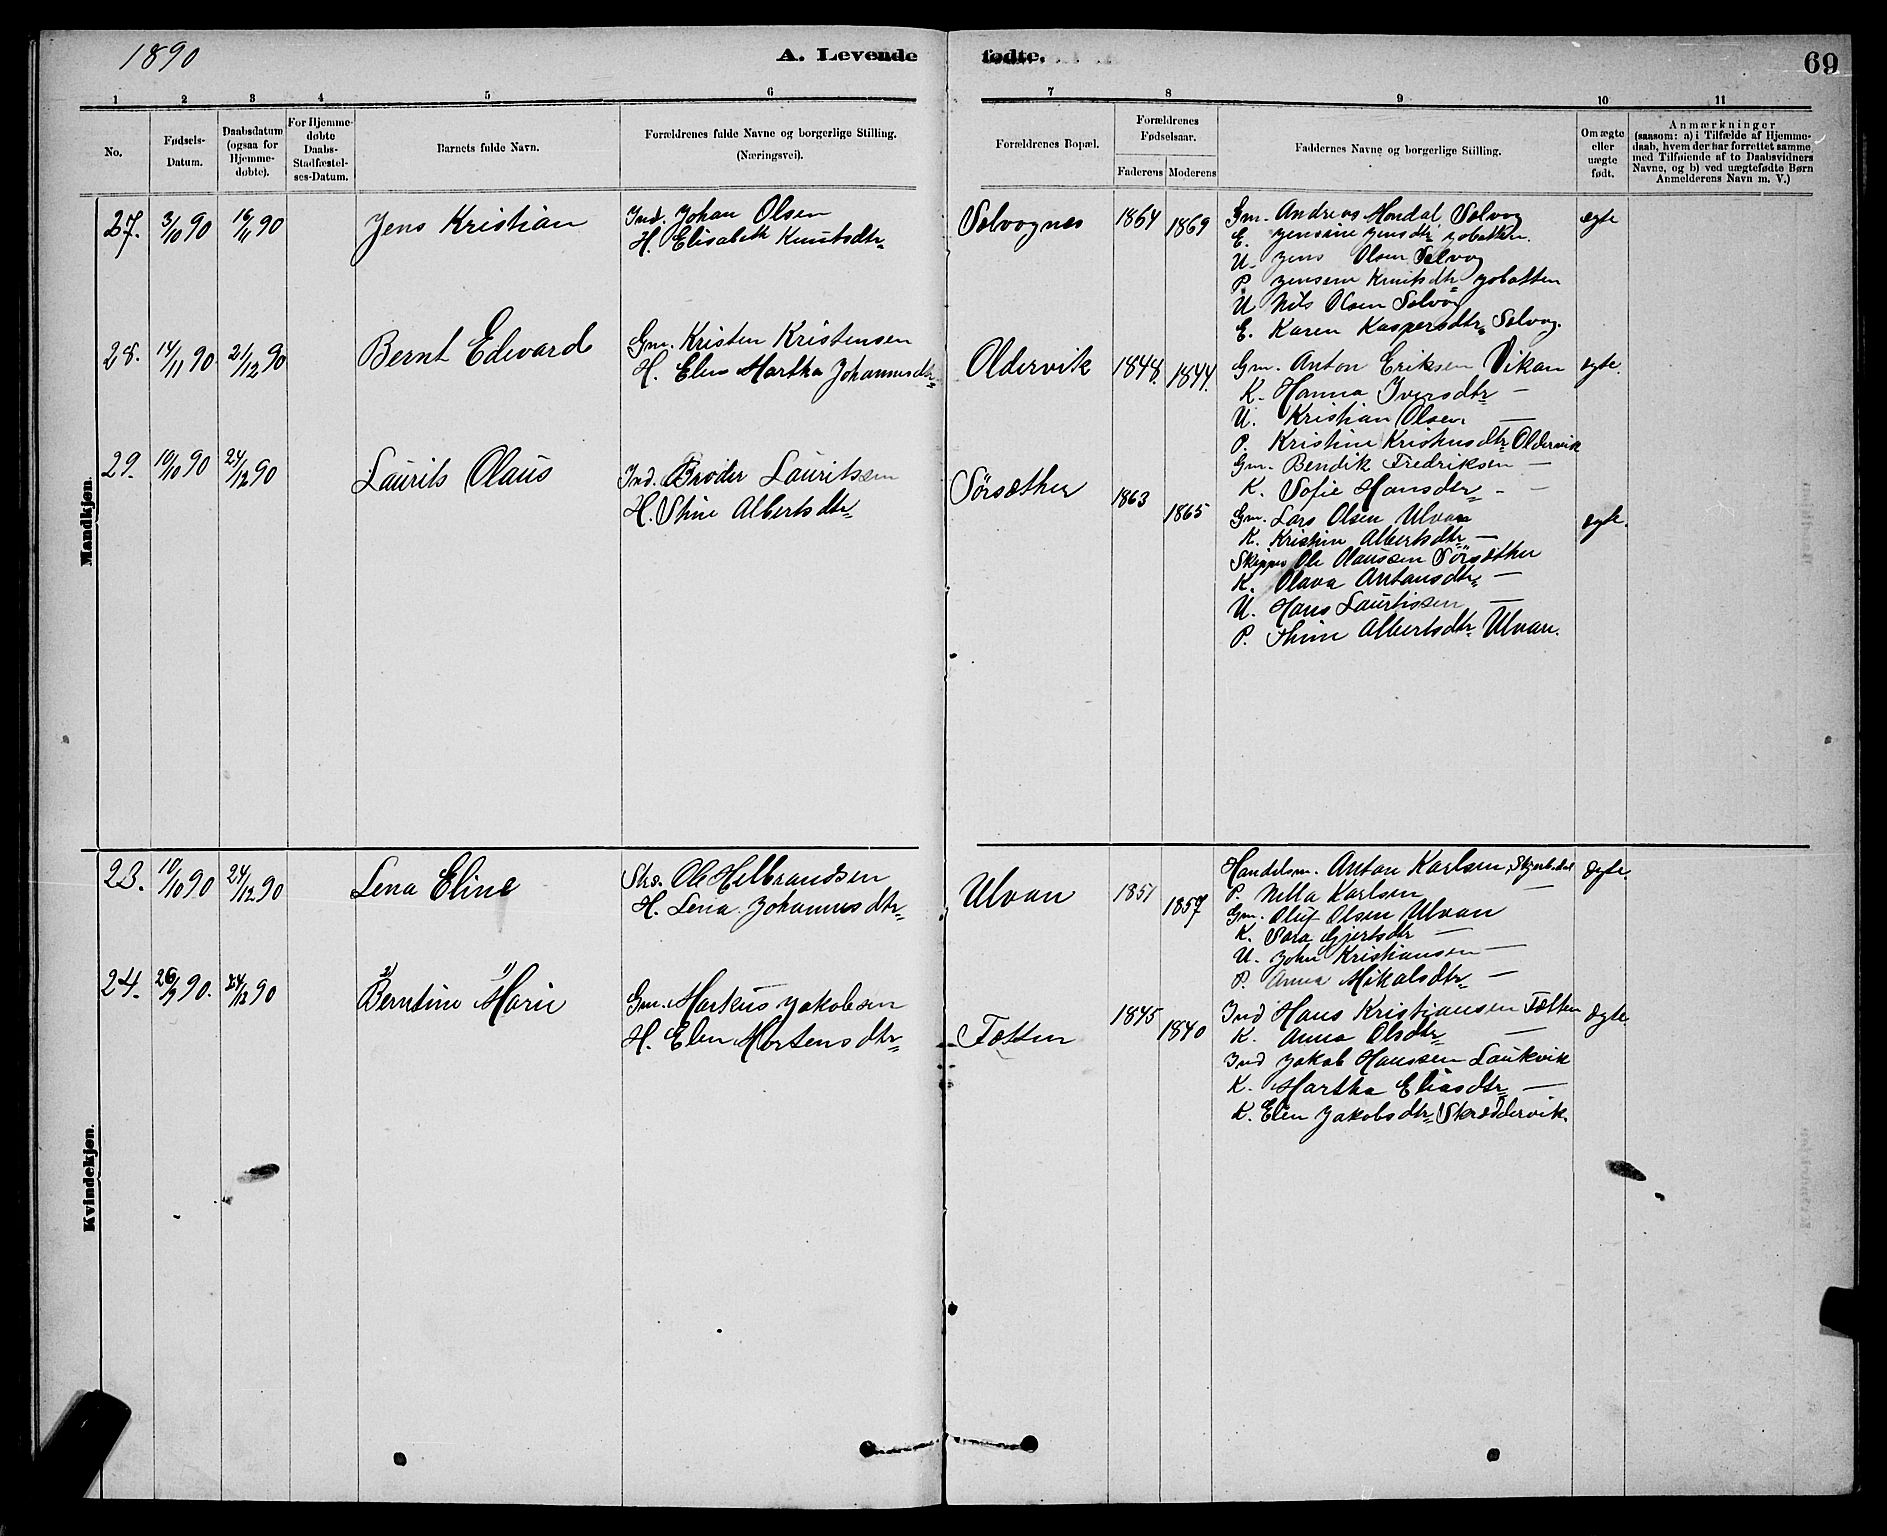 1890
A. Levende fødte.
69
1 2 3 4 5 6 7 8 9 10 11
No.
Fødsels-
Datum.
Daabsdatum
(ogsaa for
Hjemme-
døbte).
For Hjemme-
døbte
Daabs-
Stadfæstel-
ses-Datum.
Barnets fulde Navn.
Forældrenes fulde Navne og borgerlige Stilling.
(Næringsvei).
Forældrenes Bopæl.
Forældrenes
Fødselsaar.
Faderens Moderens
Faddernes Navne og borgerlige Stilling.
Om ægte
eller
uægte
født.
Anmærkninger
(saasom: a) i Tilfælde af Hjemme-
daab, hvem der har forrettet samme
med Tilføiende af to Daabsvidners
Navne, og b) ved uægtefødte Børn
Anmelderens Navn m. V.)
Mandkjøn.
27. 3/10 90 16/11 90 Jens Kristian
Ind. Johan Olsen
H. Elisabeth Knutsdtr
Selvognes 1864 1869
Gm. Andreas Mondal Selvog
E. Jensine Jensdtr Jobotten.
U. Jens Olsen Selvog
P. Jensine Knutsdtr Jobotten
U. Nils Olsen Selvog
E. Karen Kaspersdtr Selvog.
egte
28. 14/11 90. 21/12 90 Bernt Edevard
Gm. Kristen Kristensen
H. Elen Martha Johannesdtr
Oldervik 1848. 1844.
Gm. Anton Eriksen Vikan
K. Hanna Iversdtr —
U. Kristian Olsen —
P. Kristine Kristensdtr Oldervik
Gm. Bendik Fredriksen —
K. Sofie Hansdtr —
egte.
29. 10/10 90 24/12 90 Laurits Olaus
Ind. Broder Lauritsen
H. Stine Albertsdtr
Sørsæther 1863 1865
Gm. Lars Olsen Ulvan
K. Kristine Albertsdtr —
Skipper Ole Olaussen Sørsæther
K. Olava Antonsdtr —
U. Hans Lauritssen —
P. Thrine Albertsdtr Ulvan.
egte.
Kvindekjøn.
23. 10/10 90 24/12 90 Lena Eline
Str. Ole Helbrandsen
H. Lena Johannesdtr
Ulvan 1851 1857
Handelsm. Anton Karlsen,
P. Nella Karlsen
Gm. Oluf Olsen Ulvan
K. Sara Gjertsdtr —
U. John Kristiansen —
P. Anna Mikalsdtr —
Ægte.
24. 26/9 90. 24/12 90 2) Berntine 1) Marie
Gm. Markus Jakobsen
H. Elen Mortensdtr
Fætten 1845 1840
Ind Hans Kristiansen Fætten
K. Anna Olsdtr —
Ind Jakob Hanssen Laukvik
K. Martha Eliasdtr —
K. Elen Jakobsdtr Skræddervik.
Ægte.